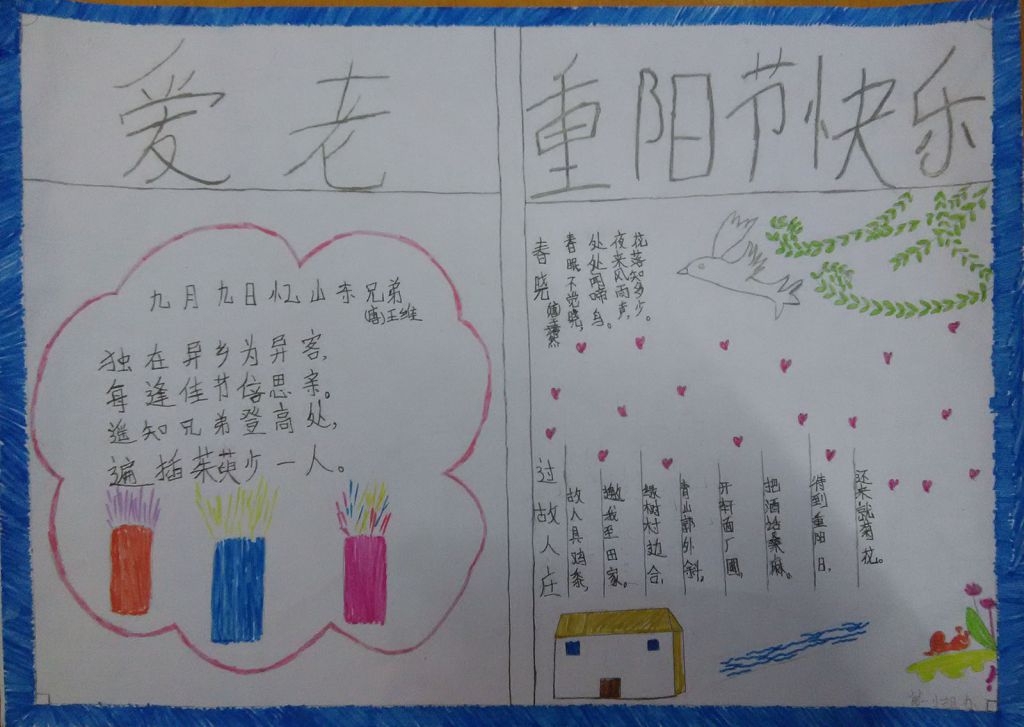 爱老
重阳节快乐
九月九日忆山东兄弟
(唐)王维
独在异乡为异客,
每逢佳节倍思亲。
遥知兄弟登高处,
遍插茱萸少一人。
春晓
春眠不觉晓,
处处闻啼鸟。
夜来风雨声,
花落知多少。
过故人庄
故人具鸡黍,
邀我至田家。
绿树村边合,
青山郭外斜。
开轩面厂圃,
把酒话桑麻。
待到重阳日,
还来就菊花。